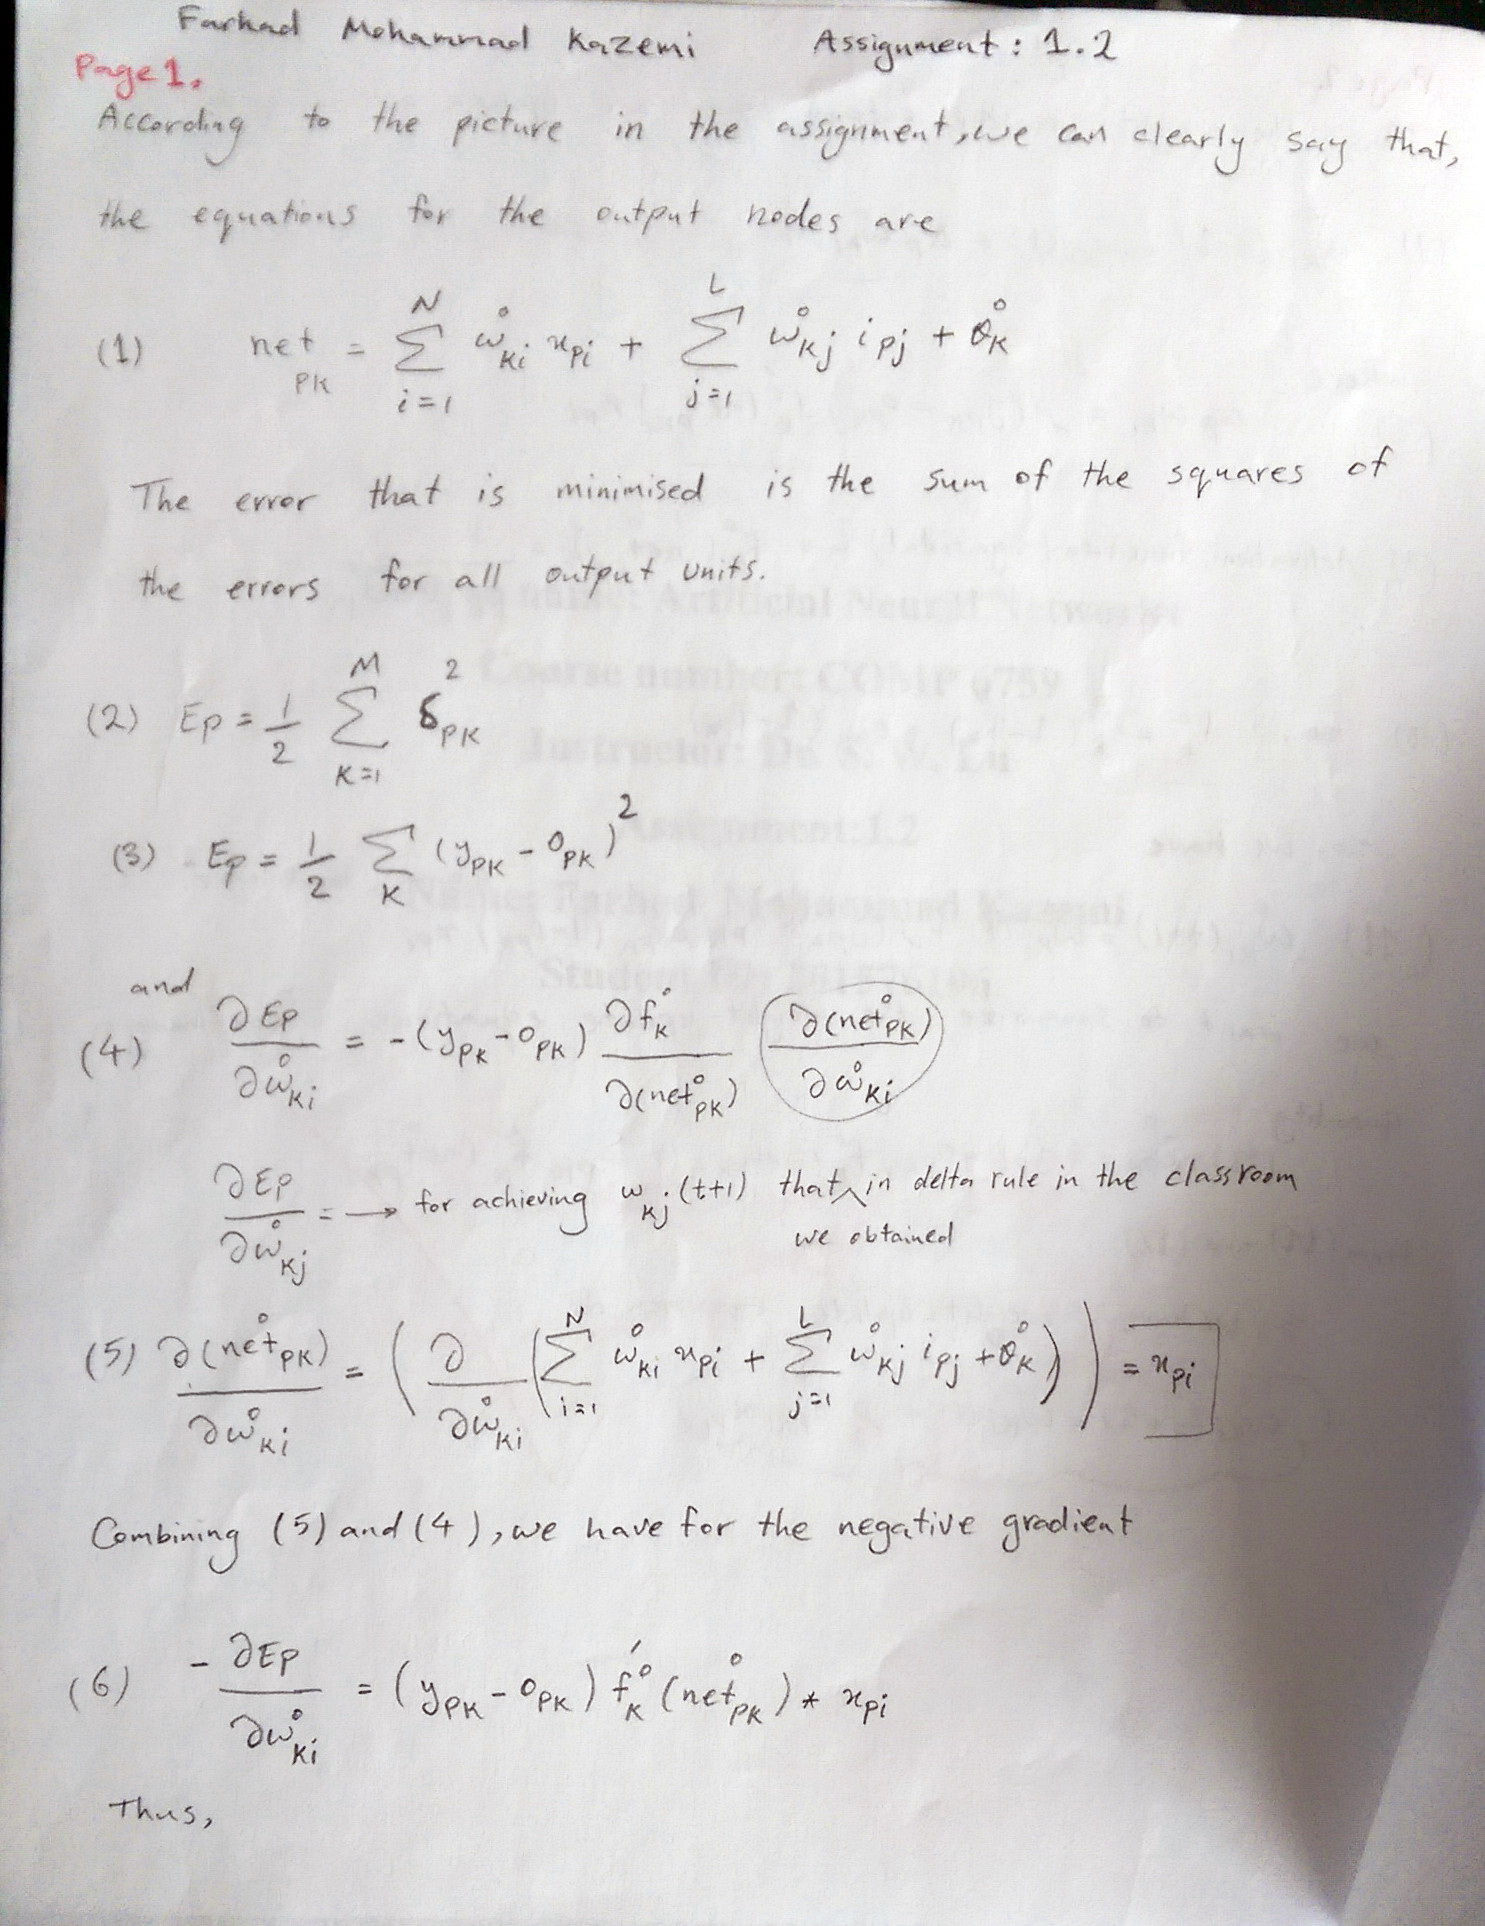 Farhad Mohammad Kazemi Assignment: 1.2
Page 1.
According to the picture in the assignment, we can clearly say that,
the equations for the output nodes are
(1) net_pk = Σ_{i=1}^{N} w°_ki x_pi + Σ_{j=1}^{L} w°_kj i_pj + θ°_k
The error that is minimised is the sum of the squares of
the errors for all output units.
(2) Ep = 1/2 Σ_{k=1}^{M} δ²_pk
(3) Ep = 1/2 Σ_k (y_pk - o_pk)²
and
(4) ∂Ep/∂w°_ki = -(y_pk - o_pk) ∂f°_k/∂(net°_pk) ∂(net°_pk)/∂w°_ki
∂Ep/∂w°_kj = → for achieving w_kj(t+1) that ^ in delta rule in the classroom
we obtained
(5) ∂(net°_pk)/∂w°_ki = (∂/∂w°_ki (Σ_{i=1}^{N} w°_ki x_pi + Σ_{j=1}^{L} w°_kj i_pj + θ°_k)) = x_pi
Combining (5) and (4), we have for the negative gradient
(6) -∂Ep/∂w°_ki = (y_pk - o_pk) f°'_k (net°_pk) * x_pi
Thus,